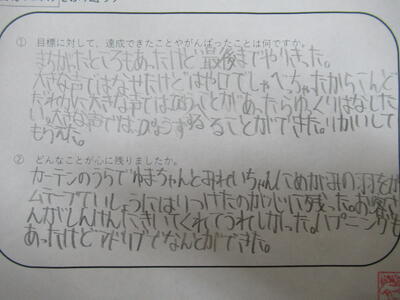 ① 目標に対して、達成できたことやがんばったことは何ですか。
まちがえたところもあったけど最後までやりきった。
大きな声ではなせたけどはや口でしゃべっちゃったからこんど
だれかに大きな声では ことがあったらゆっくりはなした
い。大きな声では ることができた。りかいして
もらえた。
② どんなことが心に残りましたか。
カーテンのうらでゆまちゃんとみれいちゃんにめがみの羽をガ
ムテープでいしょうにはりつけたのが心に残った。お客さ
んがしんけんにきいてくれてうれしかった。ハプニングも
あったけどアドリブでなんとかできた。